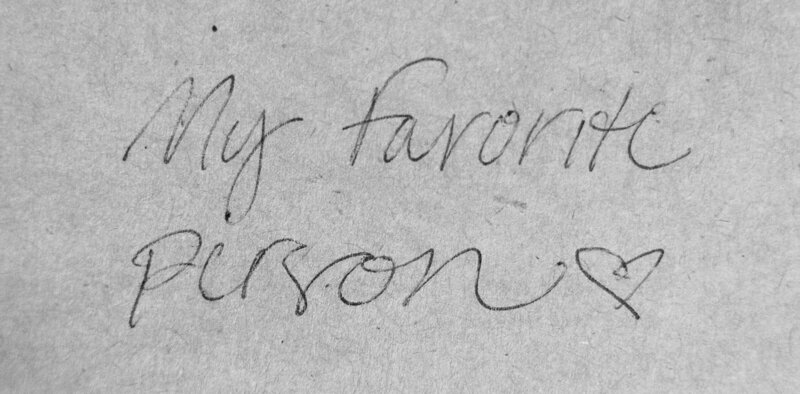 My favorite
person ♡